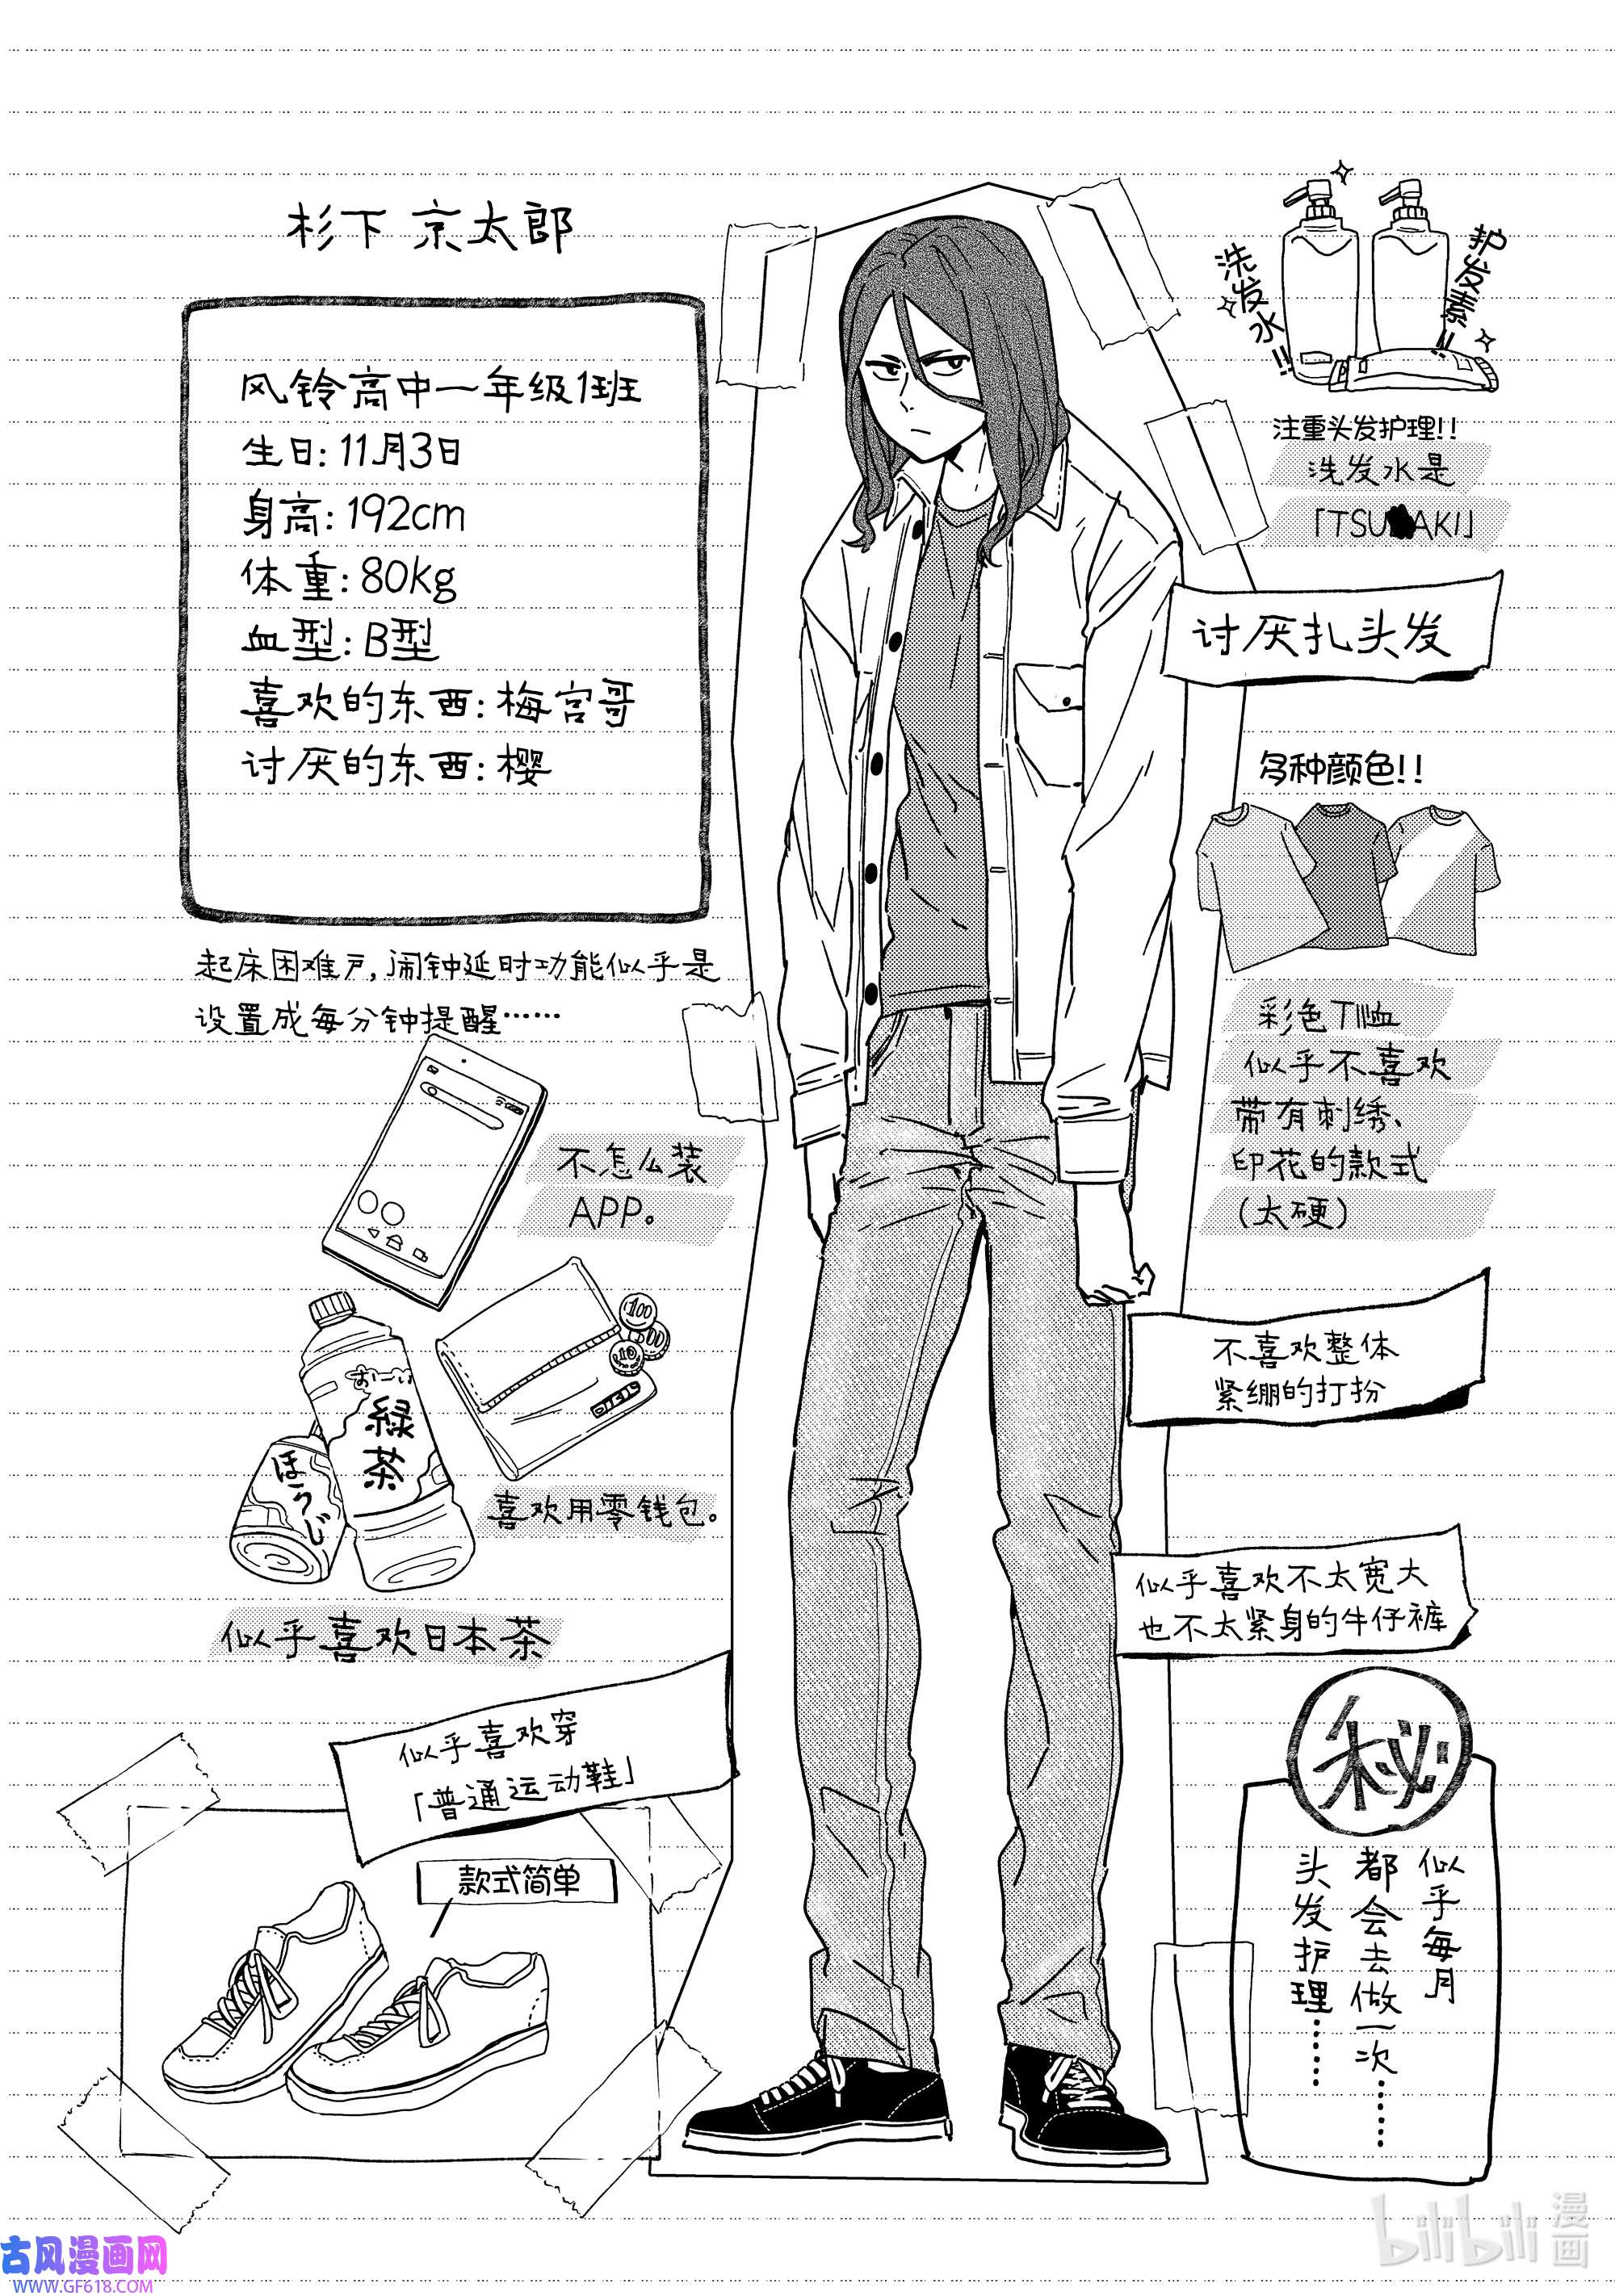 杉下 京太郎
风铃高中一年级1班
生日: 11月3日
身高: 192cm
体重: 80kg
血型: B型
喜欢的东西: 梅宫哥
讨厌的东西: 樱
起床困难户, 闹钟延时功能似乎是
设置成每分钟提醒……
不怎么装
APP。
100
500
10
喜欢用零钱包。
お〜い
緑
茶
ほうじ
似乎喜欢日本茶
似乎喜欢穿
「普通运动鞋」
款式简单
洗发水!!
护发素!!
注重头发护理!!
洗发水是
「TSU AKI」
讨厌扎头发
多种颜色!!
彩色T恤
似乎不喜欢
带有刺绣、
印花的款式
(太硬)
不喜欢整体
紧绷的打扮
似乎喜欢不太宽大
也不太紧身的牛仔裤
秘
似乎每月
都会去做一次……
头发护理……
古风漫画网
WWW.GF618.COM
bilibili
漫画